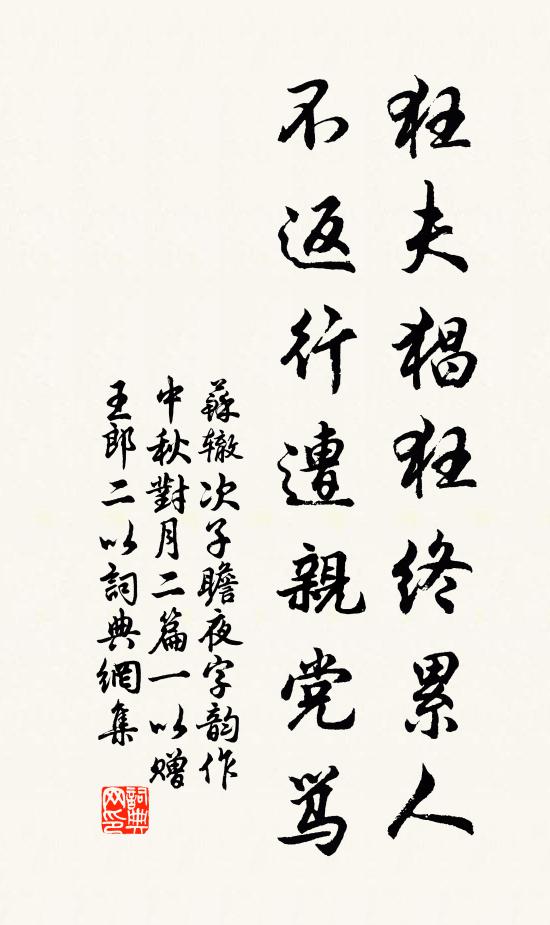 狂夫猖狂终累人
不返行遭親党骂
蘇辙次子瞻夜字韵作
中秋對月二篇一以赠
王郎二以詞典網集
詞典
网印